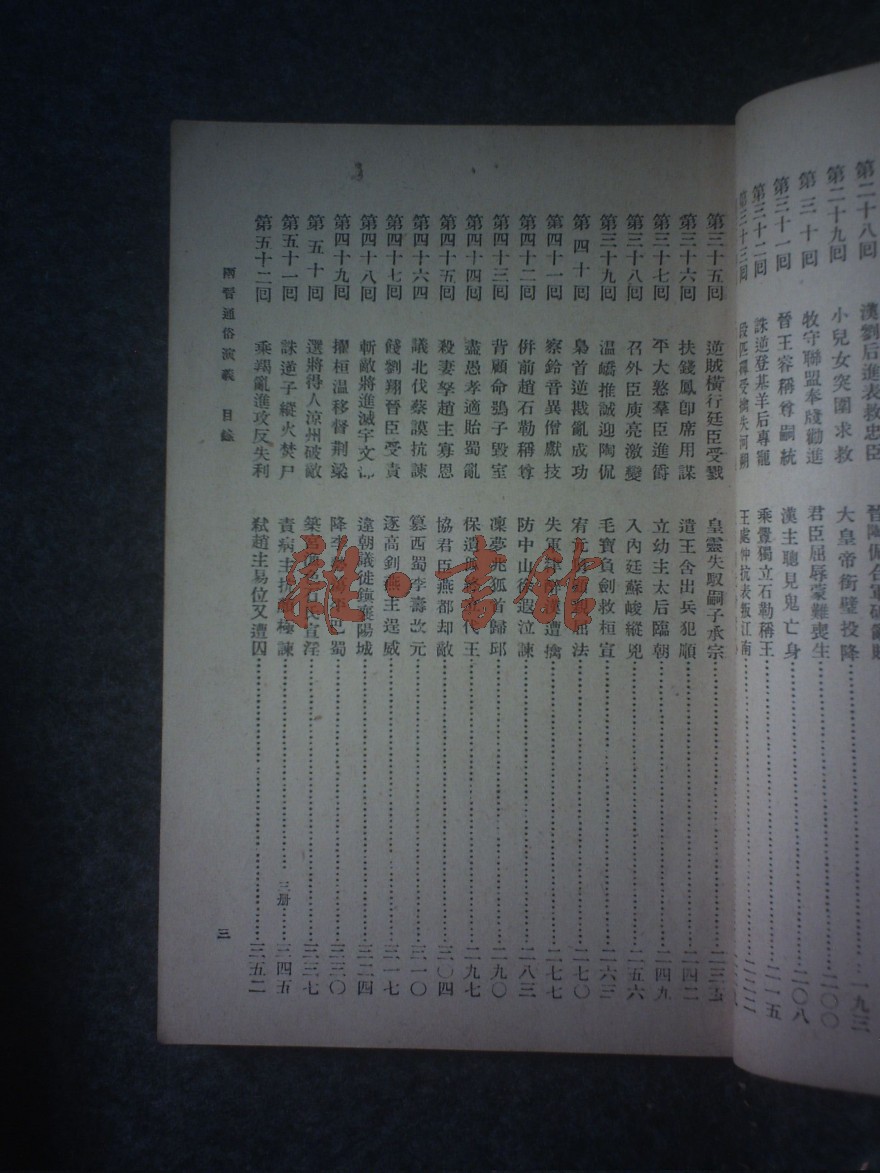 第二十八回 漢劉后進表救忠臣 一九三
第二十九回 小兒女突圍求救 大皇帝銜璧投降 二〇〇
第三十回 牧守聯盟奉牋勸進 君臣屈辱蒙難喪生 二〇八
第三十一回 晉王睿稱尊嗣統 漢主聰見鬼亡身 二一五
第三十二回 誅逆登基羊后專寵 乘釁獨立石勒稱王 二二二
第三十三回 王處仲抗表叛江南
第三十五回 逆賊橫行廷臣受戮 皇靈失馭嗣子承宗 二三五
第三十六回 扶錢鳳卽席用謀 遣王含出兵犯順 二四二
第三十七回 平大憝羣臣進爵 立幼主太后臨朝 二四九
第三十八回 召外臣庾亮激變 入內廷蘇峻縱兇 二五六
第三十九回 溫嶠推誠迎陶侃 毛寶負劍救桓宣 二六三
第四十回 梟首逆戡亂成功 宥 屈法 二七〇
第四十一回 察鈴音異僧獻技 失軍 遭擒 二七七
第四十二回 倂前趙石勒稱尊 防中山徐遐泣諫 二八三
第四十三回 背顧命鴟子毀室 凜夢兆狐首歸邱 二九〇
第四十四回 盡愚孝適貽蜀亂 保遺 代王 二九七
第四十五回 殺妻孥趙主寡恩 協君臣燕都却敵 三〇四
第四十六四 議北伐蔡謨抗諫 篡西蜀李壽改元 三一〇
第四十七回 餞劉翔晉臣受責 逐高釗燕主逞威 三一七
第四十八回 斬敵將進滅宇文 違朝議徙鎮襄陽城 三二四
第四十九回 擢桓溫移督荊梁 降李 巴蜀 三三〇
第五十回 選將得人涼州破敵 築宮 民宣淫 三三七
第五十一回 誅逆子縱火焚尸 責病主抗 極諫 三册 三四五
第五十二回 乘羯亂進攻反失利 弒趙主易位又遭囚 三五二
兩晉通俗演義 目錄 三
雜·書館